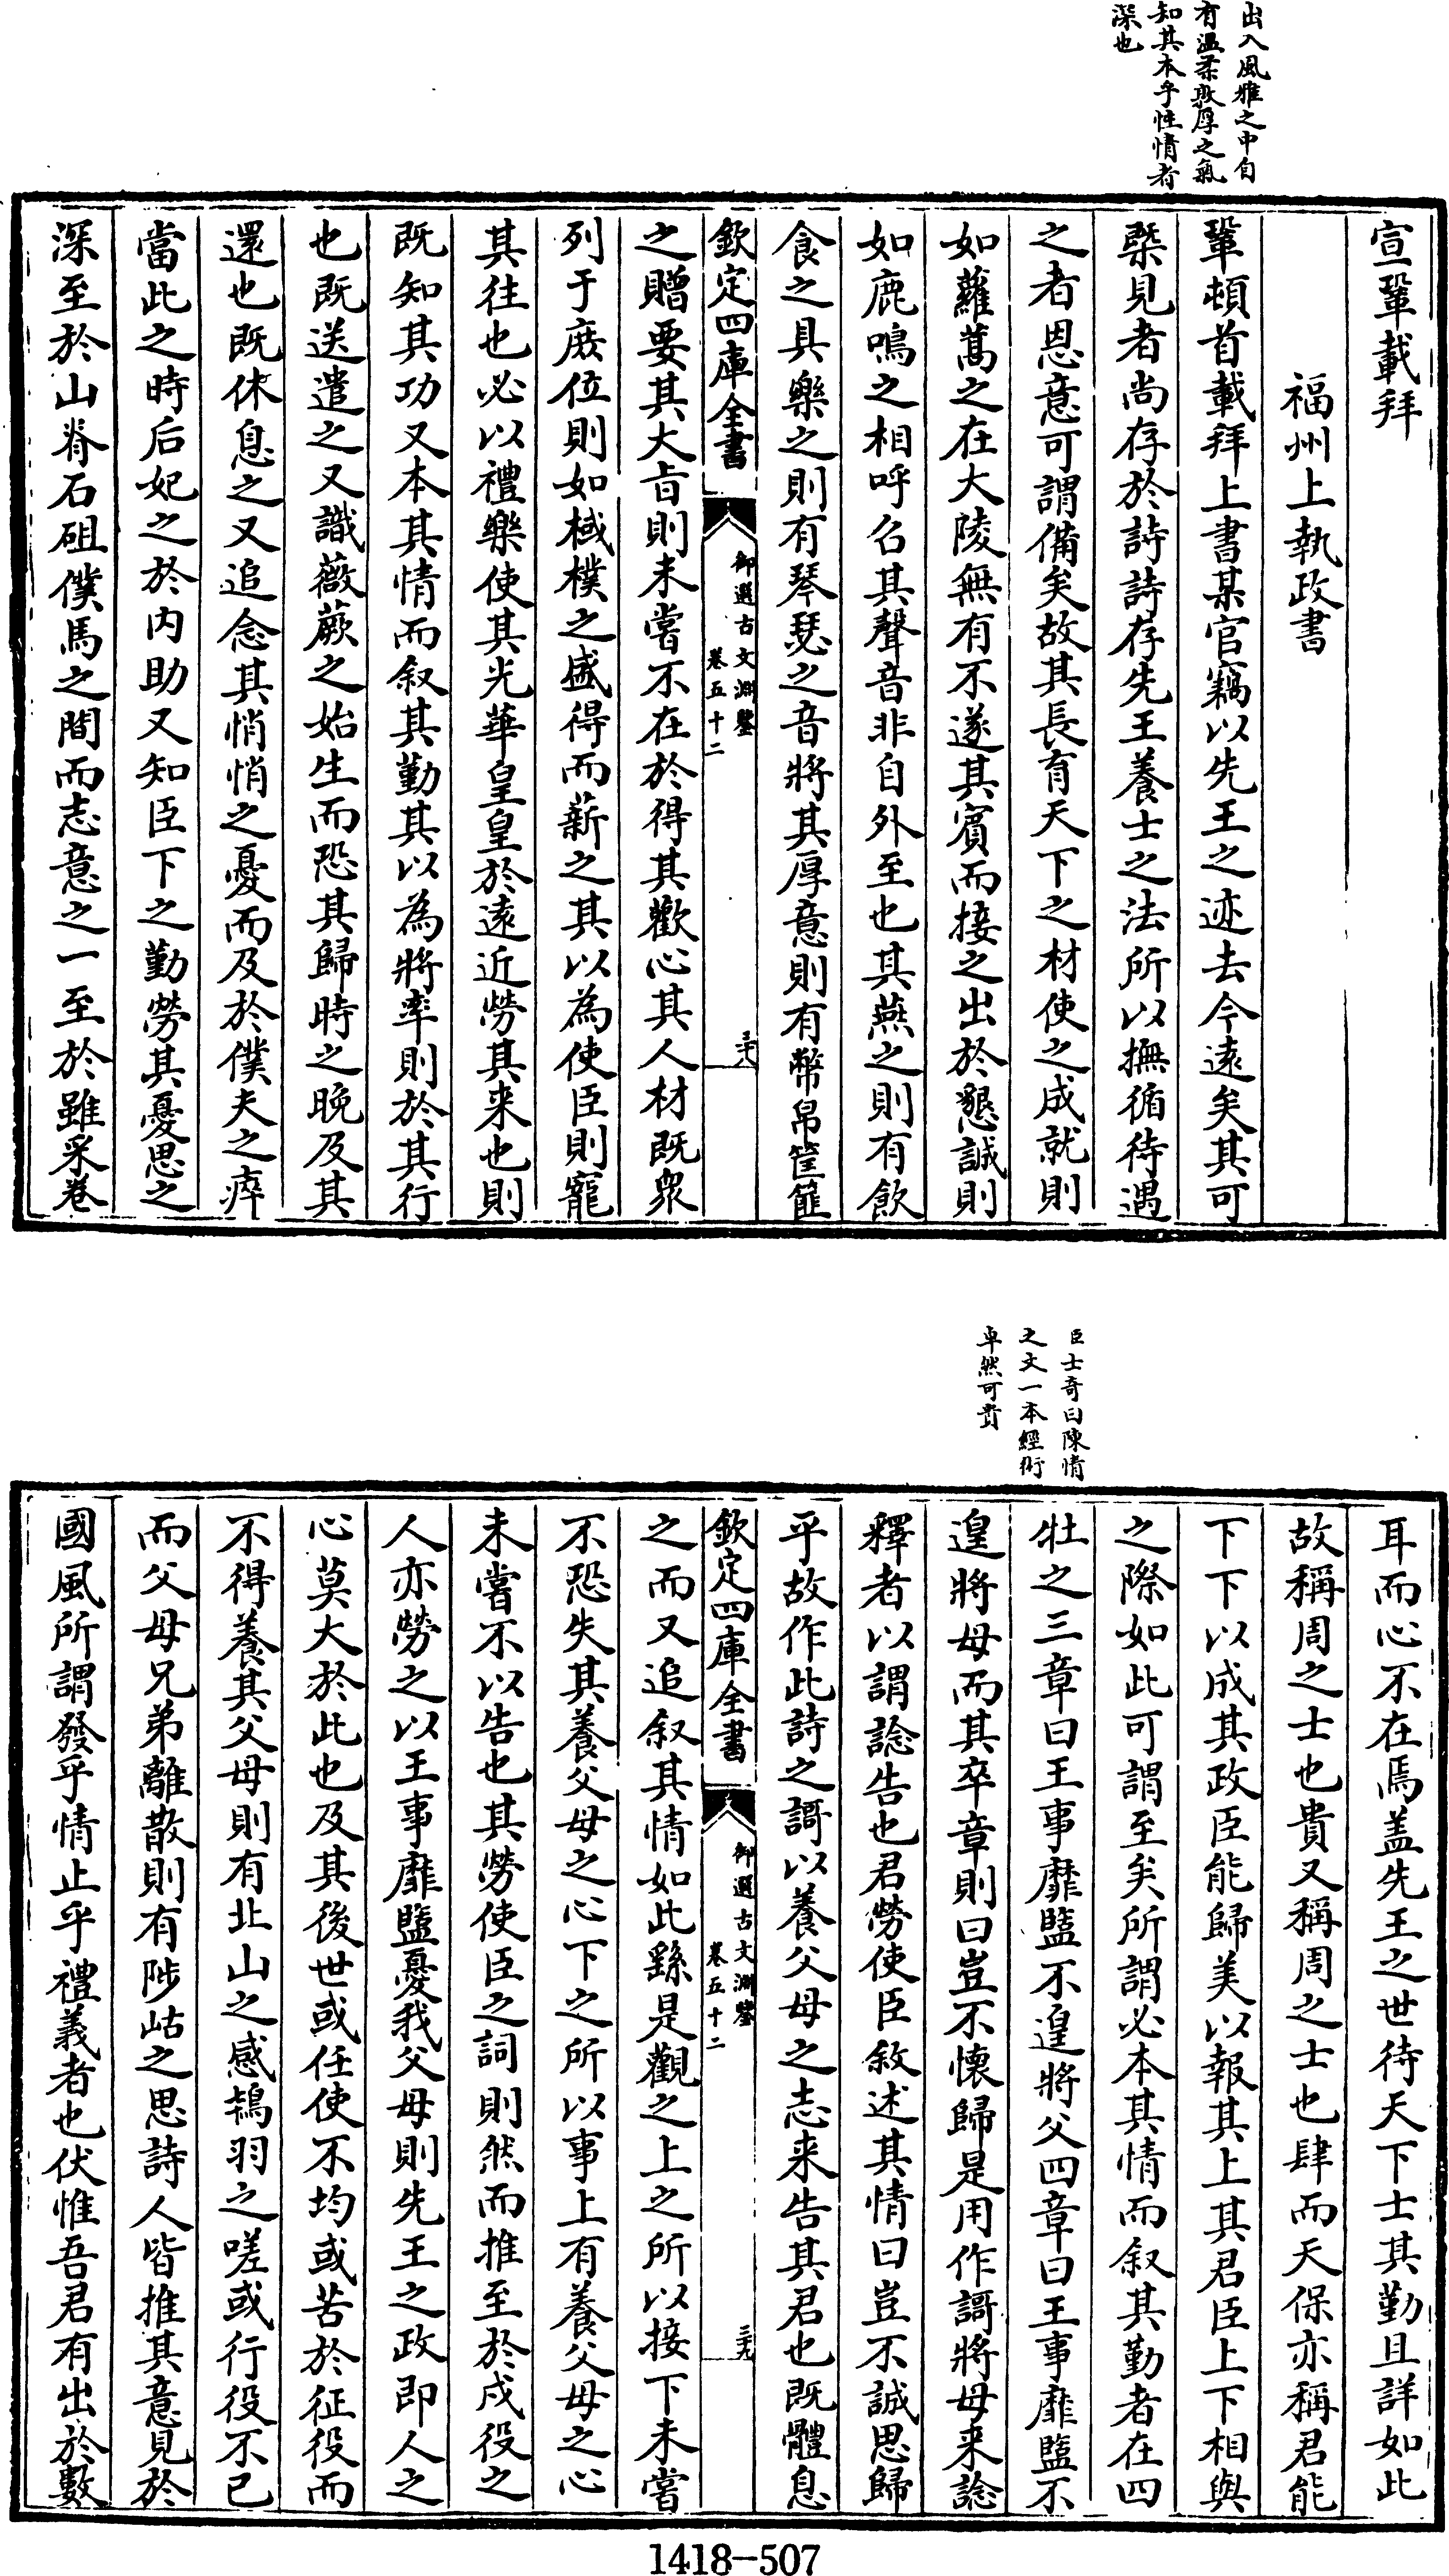 出入風雅之中自
有溫柔敦厚之氣
知其本乎性情者
深也
宣鞏載拜
福州上執政書
鞏頓首載拜上書某官竊以先王之迹去今遠矣其可
槩見者尚存於詩詩存先王養士之法所以撫循待遇
之者恩意可謂備矣故其長育天下之材使之成就則
如蘿蒿之在大陵無有不遂其賓而接之出於懇誠則
如鹿鳴之相呼召其聲音非自外至也其燕之則有飲
食之具樂之則有琴瑟之音將其厚意則有幣帛筐篚
欽定四庫全書
御選古文淵鑒
卷五十二
三十八
之贈要其大旨則未嘗不在於得其歡心其人材既衆
列于庶位則如棫樸之盛得而薪之其以為使臣則寵
其往也必以禮樂使其光華皇皇於遠近勞其来也則
既知其功又本其情而叙其勤其以為將率則於其行
也既送遣之又識薇蕨之始生而恐其歸時之晚及其
還也既休息之又追念其悄悄之憂而及於僕夫之瘁
當此之時后妃之於内助又知臣下之勤勞其憂思之
深至於山脊石砠僕馬之間而志意之一至於雖采卷
臣士奇曰陳情
之文一本經術
卓然可貴
耳而心不在焉盖先王之世待天下士其勤且詳如此
故稱周之士也貴又稱周之士也肆而天保亦稱君能
下下以成其政臣能歸美以報其上其君臣上下相與
之際如此可謂至矣所謂必本其情而叙其勤者在四
牡之三章曰王事靡盬不遑將父四章曰王事靡盬不
遑將母而其卒章則曰豈不懷歸是用作謌將母来諗
釋者以謂諗告也君勞使臣敘述其情曰豈不誠思歸
乎故作此詩之謌以養父母之志来告其君也既體息
欽定四庫全書
御選古文淵鑒
卷五十二
三十九
之而又追叙其情如此繇是觀之上之所以接下未嘗
不恐失其養父母之心下之所以事上有養父母之心
未嘗不以告也其勞使臣之詞則然而推至於戍役之
人亦勞之以王事靡盬憂我父母則先王之政即人之
心莫大於此也及其後世或任使不均或苦於征役而
不得養其父母則有北山之感鴇羽之嗟或行役不已
而父母兄弟離散則有陟岵之思詩人皆推其意見於
國風所謂發乎情止乎禮義者也伏惟吾君有出於數
1418-507